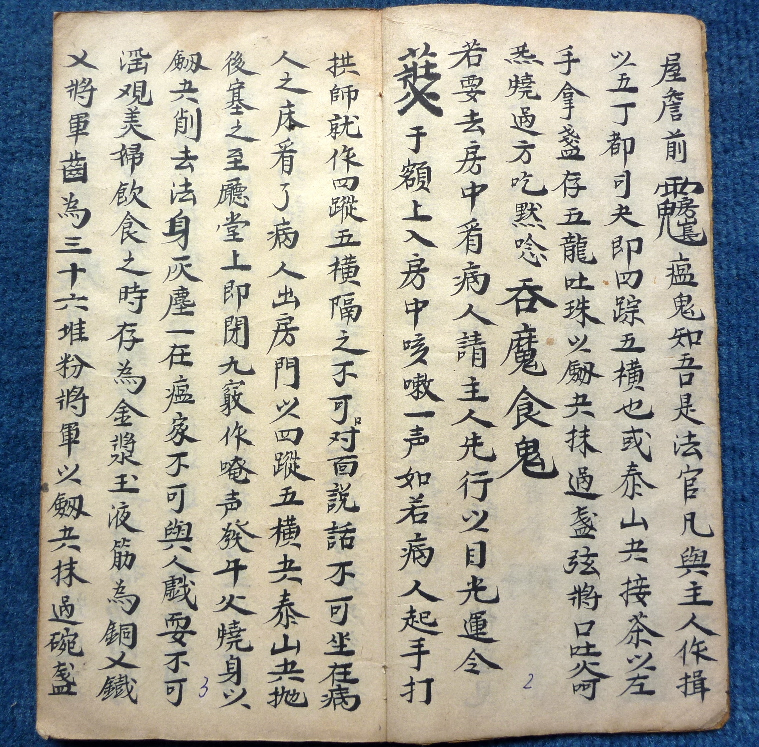 屋詹前 瘟鬼知吾是法官凡與主人作揖
以五丁都司夬即四踪五横也或泰山夬接茶以左
手拿盞存五龍吐珠以劔夬抹過盞弦將口吐火呵
炁燒過方吃黙唸吞魔食鬼
若要去房中看病人請主人先行以目光運令
于額上入房中咳嗽一声如若病人起手打
拱師就作四蹤五横隔之不可对面説話不可坐在病
人之床看了病人出房門以四蹤五横夬泰山夬抛
後塞之至廳堂上即閉九竅作唵声發午火燒身以
劔夬削去法身灰塵一在瘟家不可與人戲耍不可
滛观美婦飲食之時存為金漿玉液筋為銅乂鐵
乂將軍齒為三十六堆粉將軍以劔夬抹過碗盞
2
3